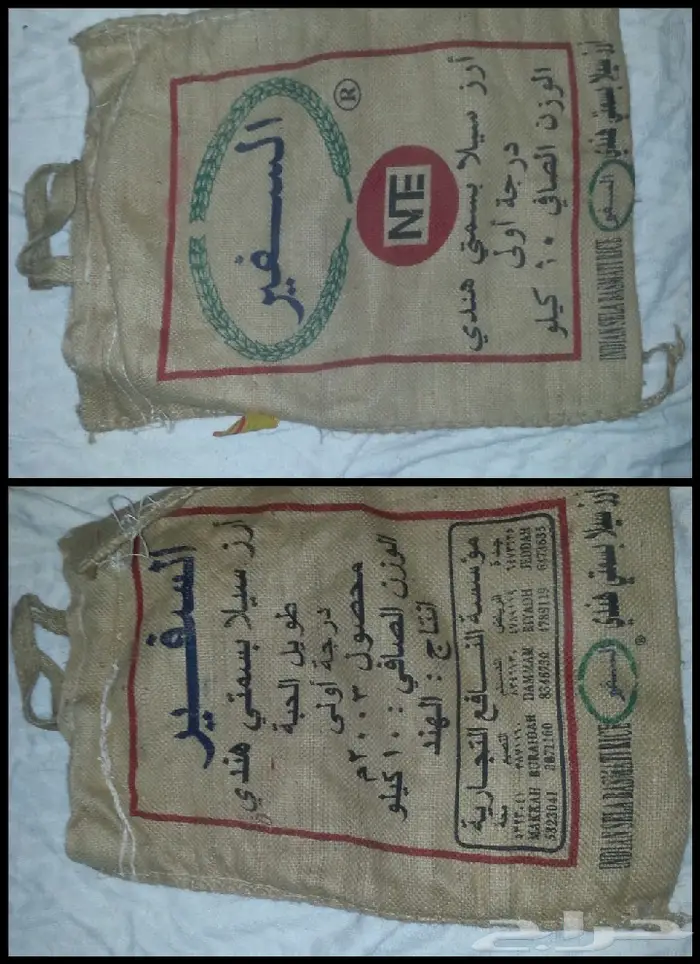 السفير
®
NTE
أرز سيلا بسمتي هندي
درجة أولى
الوزن الصافي ١٠ كيلو
INDIAN SELA BASMATI RICE السفير أرز سيلا بسمتي هندي
السفير
أرز سيلا بسمتي هندي
طويل الحبة
درجة أولى
محصول ٢٠٠٣م
الوزن الصافي : ١٠ كيلو
انتاج : الهند
مؤسسة النافع التجارية
جدة الرياض القصيم
MAKKAH BURAIDAH DAMMAM RIYADH JEDDAH
5323041 8346730 4789119
INDIAN SELA BASMATI RICE السفير ® أرز سيلا بسمتي هندي
حراج